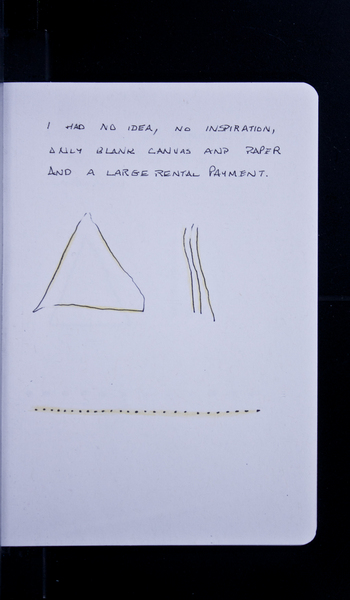 I HAD NO IDEA, NO INSPIRATION,
ONLY BLANK CANVAS AND PAPER
AND A LARGE RENTAL PAYMENT.